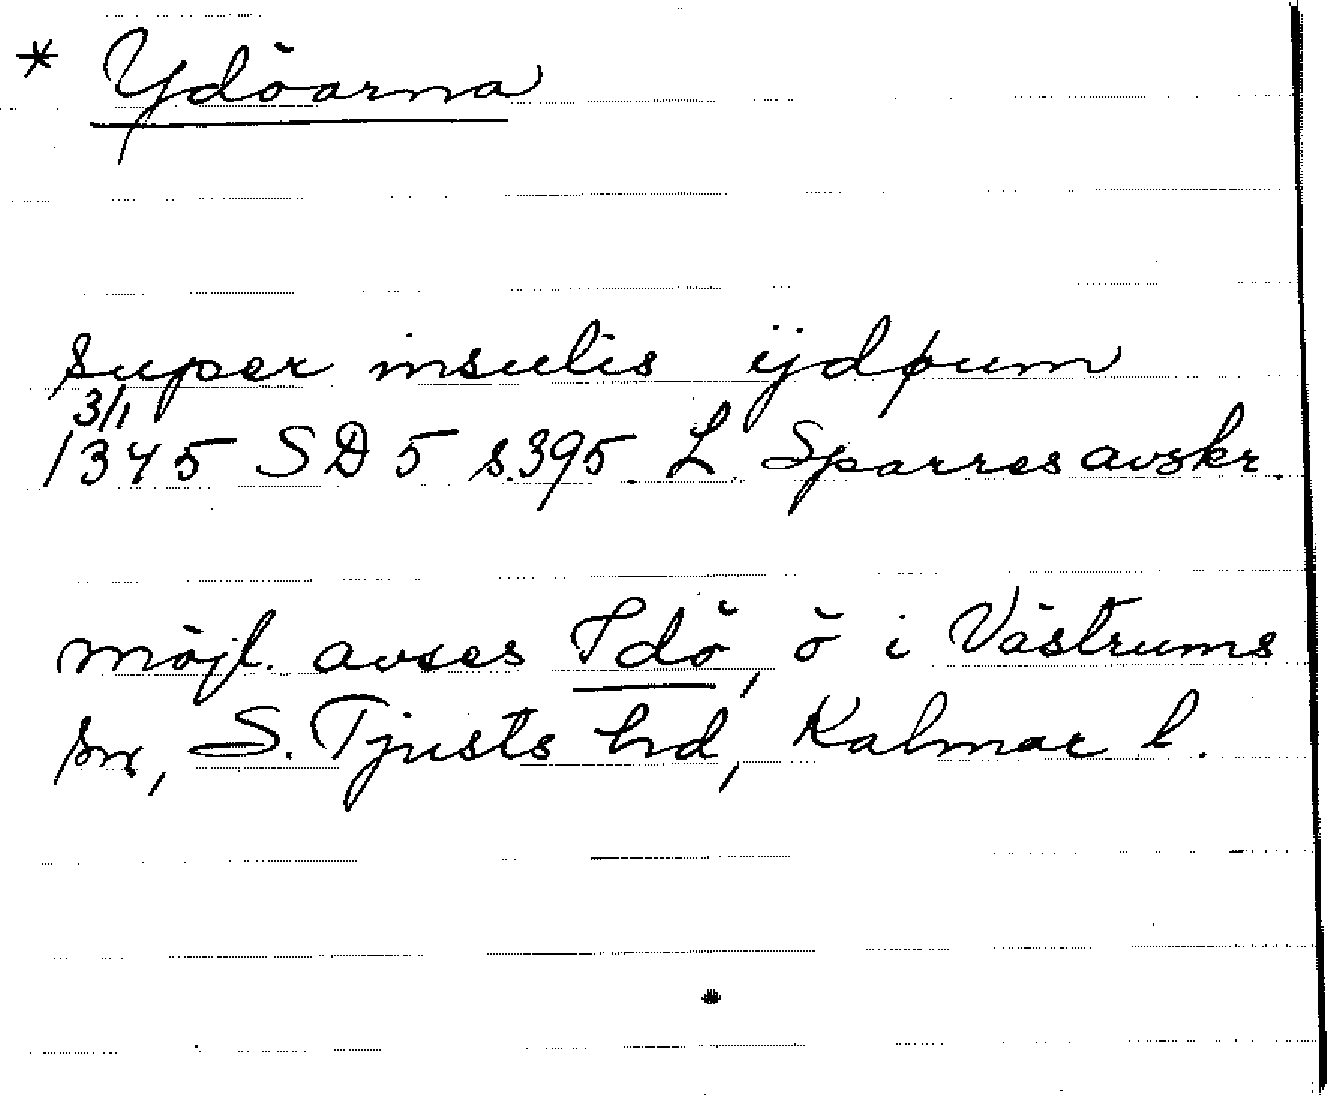 * Ydöarna
super insulis ÿdøum
3/1
1345 SD 5 s. 395. L. Sparres avskr.
möjl. avses Idö, ö i Västrums
sn, S. Tjusts hd, Kalmar l.